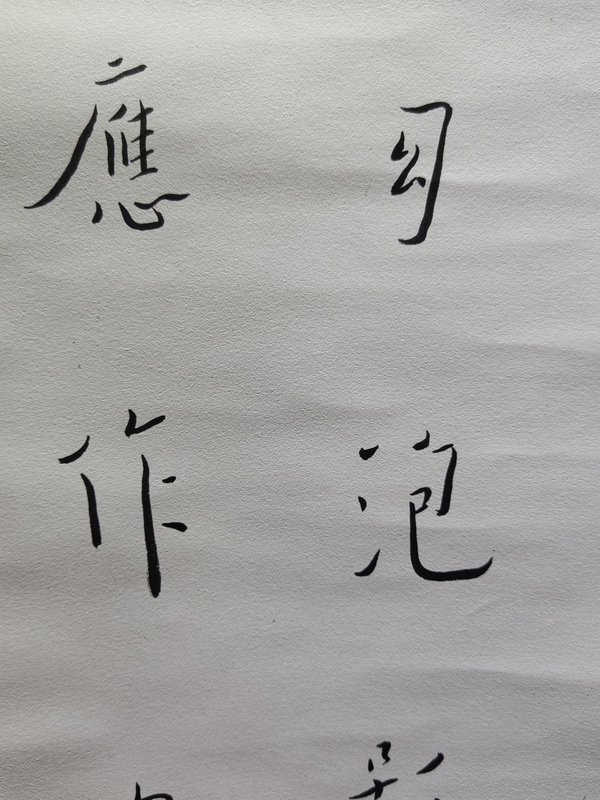 幻泡
應作